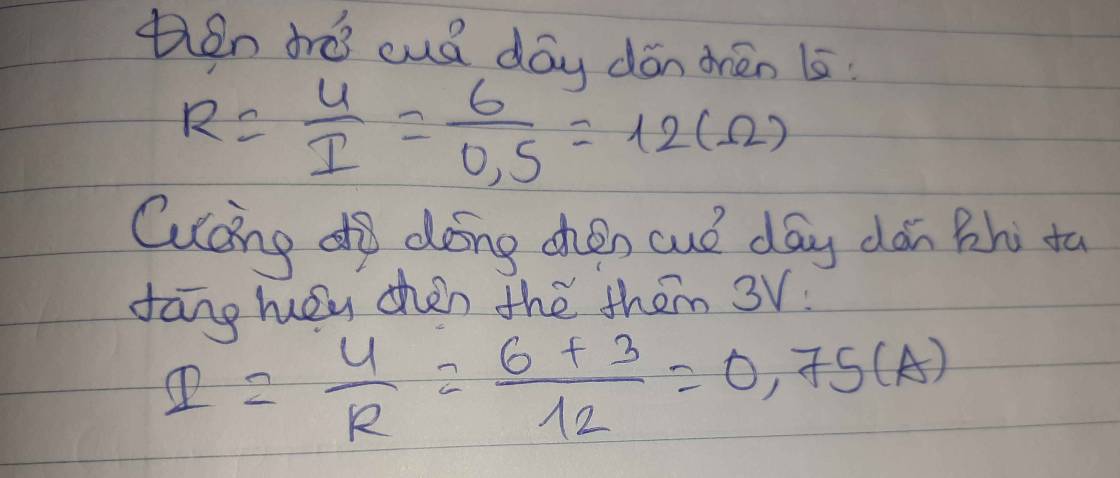 Điện trở của dây dẫn trên là:
R = U/I = 6/0,5 = 12(Ω)
Cường độ dòng điện của dây dẫn khi ta
tăng hiệu điện thế thêm 3V:
I = U/R = (6 + 3)/12 = 0,75(A)